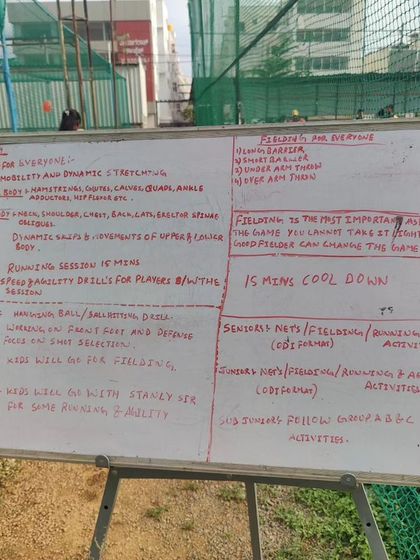 FOR EVERYONE:-
MOBILITY AND DYNAMIC STRETCHING
BODY :- HAMSTRINGS, GLUTES, CALVES, QUADS, ANKLE
ADDUCTORS, HIP FLEXOR ETC.
:- NECK, SHOULDER, CHEST, BACK, LATS, ERECTOR SPINAE
OBLIQUES.
DYNAMIC SKIPS & MOVEMENTS OF UPPER & LOWER
BODY.
RUNNING SESSION 15 MINS
SPEED & AGILITY DRILL'S FOR PLAYERS B/W THE
SESSION
HANGING BALL / BALL HITTING DRILL.
WORKING ON FRONT FOOT AND DEFENSE
FOCUS ON SHOT SELECTION.
KIDS WILL GO FOR FIELDING.
KIDS WILL GO WITH STANLY SIR
FOR SOME RUNNING & AGILITY
FIELDING FOR EVERYONE
1) LONG BARRIER
2) SHORT BARRIER
3) UNDER ARM THROW
4) OVER ARM THROW
FIELDING IS THE MOST IMPORTANT
THE GAME YOU CANNOT TAKE IT
GOOD FIELDER CAN CHANGE THE GAME
15 MINS COOL DOWN
SENIORS:- NETS / FIELDING / RUNNING
(ODI FORMAT)
JUNIORS:- NETS / FIELDING / RUNNING &
(ODI FORMAT) ACTIVITIES
SUB JUNIORS FOLLOW GROUP A B & C
ACTIVITIES.